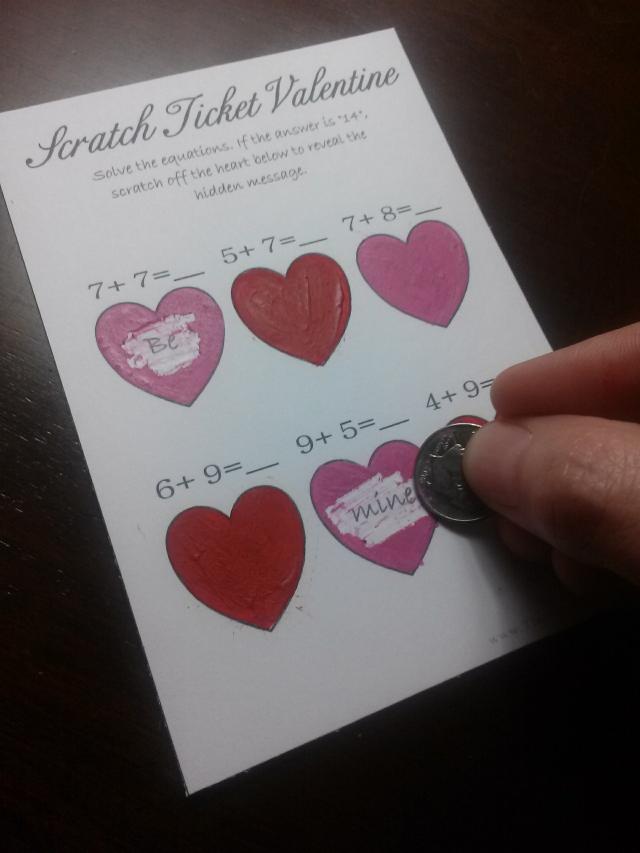 Scratch Ticket Valentine
Solve the equations. If the answer is "14",
scratch off the heart below to reveal the
hidden message.
7+ 7=__ 5+ 7=__ 7+ 8=__
Be
6+ 9=__ 9+ 5=__ 4+ 9=
mine